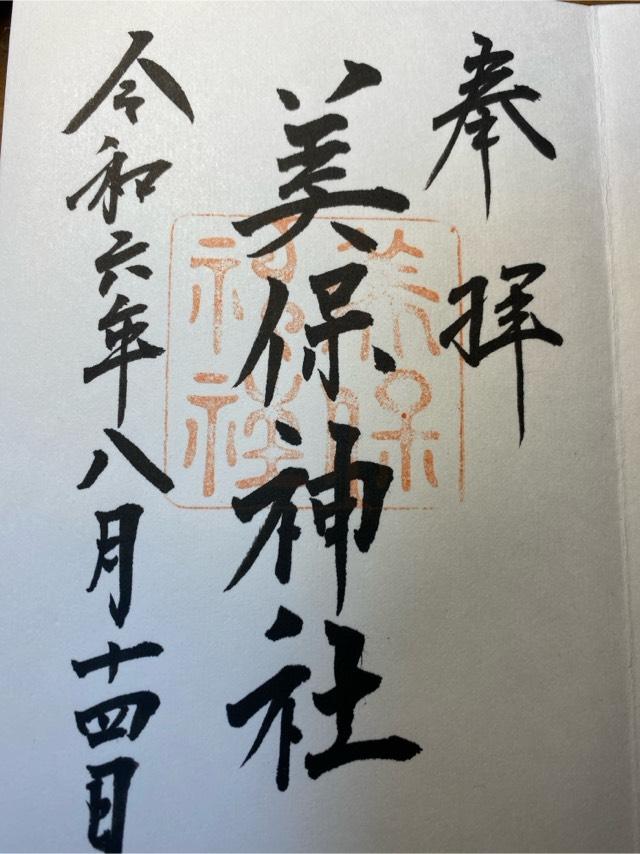 奉拝
美保神社
令和六年八月十四日
美保
神社